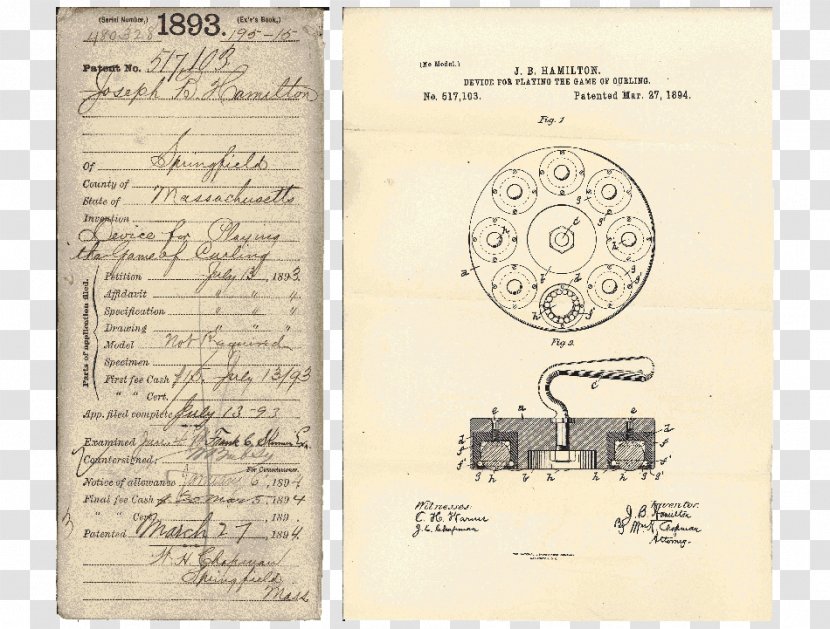 (Serial Number,) 1893. (Ex'r's Book,)
480328 195-15
Patent No. 517,103
Joseph B. Hamilton
Of Springfield
County of
State of Massachusetts
Invention
Device for Playing
the Game of Curling
Parts of application filed.
Petition July 13, 1893.
Affidavit " " "
Specification " " "
Drawing " " "
Model Not Required
Specimen
First fee Cash $15. July 13/93
" " Cert.
App. filed complete July 13-93
Examined Frank C. Skinner Ex.
Countersigned:
For Commissioner.
Notice of allowance January 6, 1894
Final fee Cash Mar 5, 1894
" " Cert. , 189
Patented March 27, 1894.
W. H. Chapman
Springfield
Mass
(No Model.)
J. B. HAMILTON.
DEVICE FOR PLAYING THE GAME OF CURLING.
No. 517,103. Patented Mar. 27, 1894.
Fig. 1
g
f
h
c
h
h
g
a
b
g
h
f
Fig. 2.
c
e a e
d d
f f
g' g' g'
g h b h h g
Witnesses.
C. H. Warner
J. C. Chapman
Inventor.
J. B. Hamilton
By Chapman
Attorney.